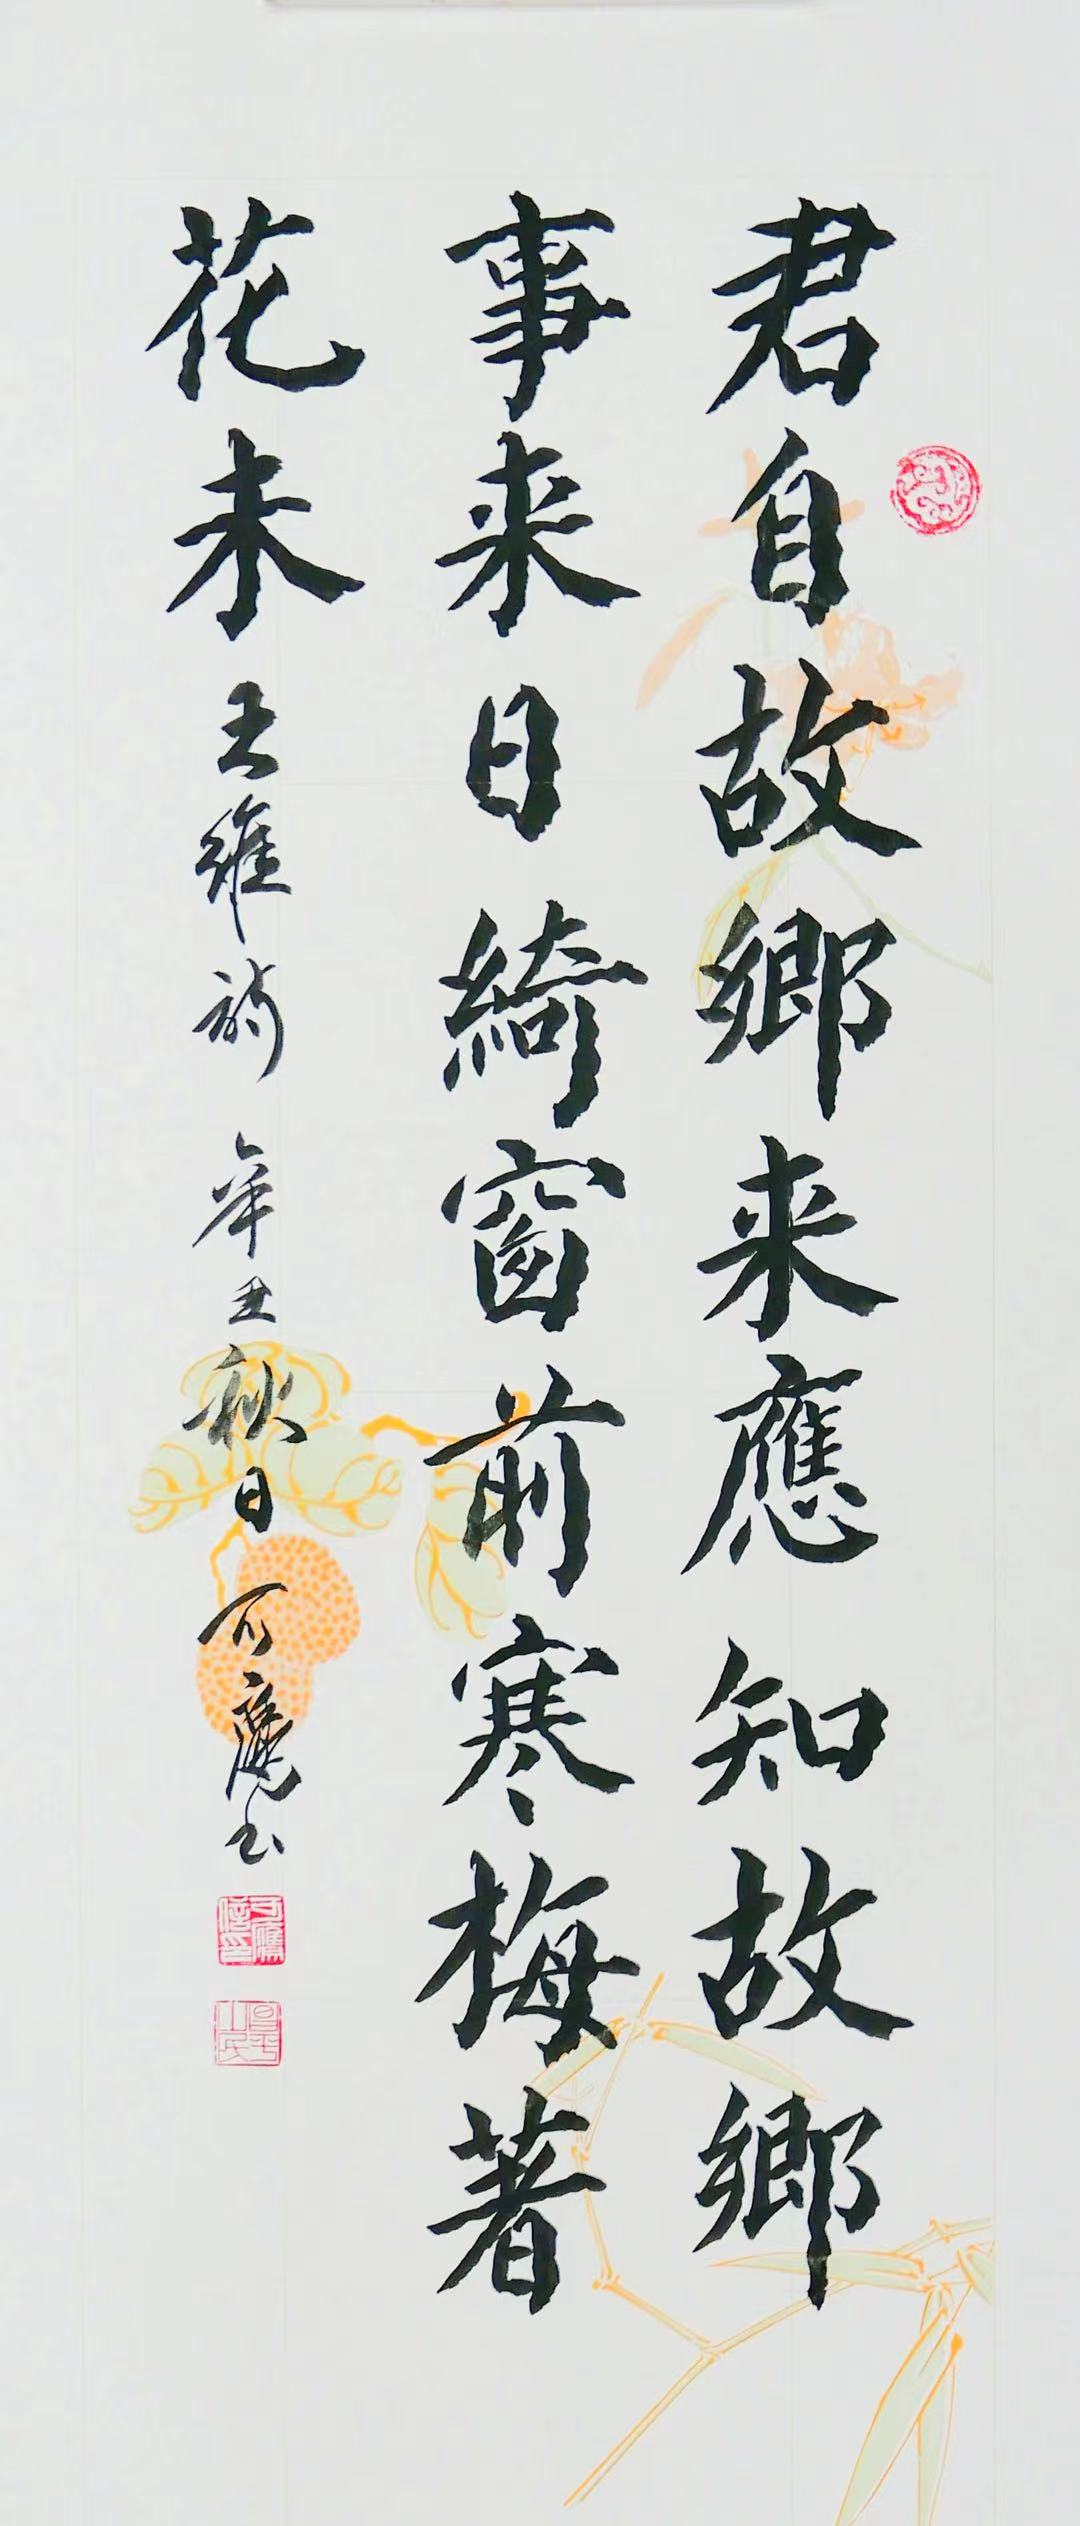 君自故鄉来應知故鄉
事来日綺窗前寒梅著
花未
王維詩 辛丑秋日 可鷹书